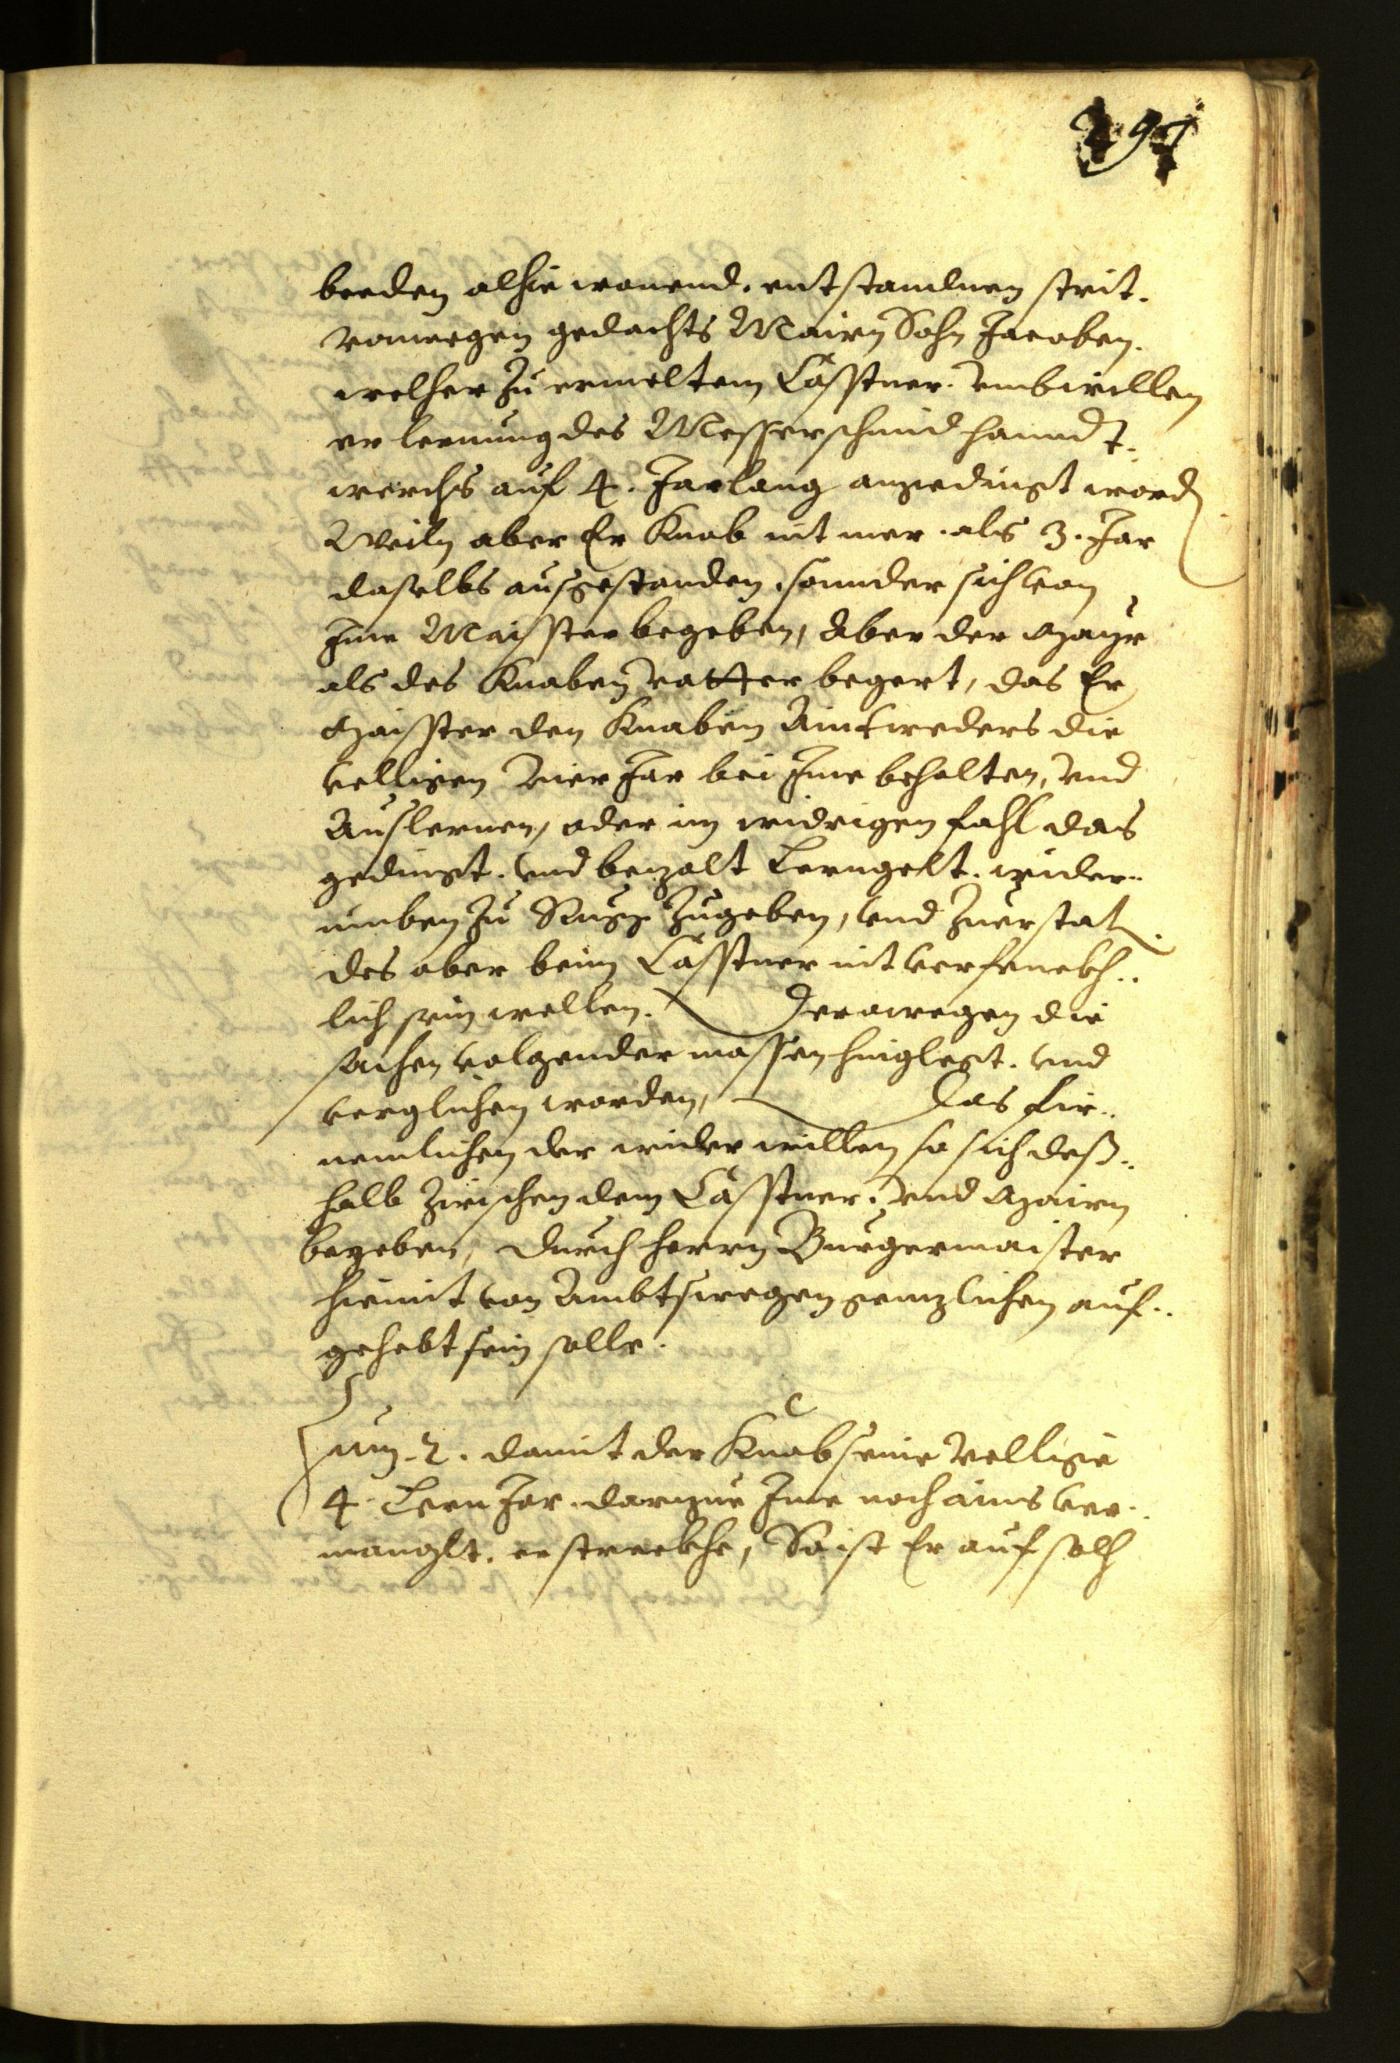 beeden alhie wonend. entstandnen strit.
vonwegen gedachts Mairn Sohn Jacoben.
welher zu ermeltem Cässtner. umbwillen
erlernung des Messerschmid handt-
werchs auf 4. Jarlang angedingt word
Weiln aber Er Knab nit mer. als 3. Jar
daselbs ausgestanden. sonnder sich von
Ime Maister begeben, Aber der Mayr
als des Knaben vatter begert, das Er
Maisster den Knaben Aintweders die
velligen vier Jar bei Ime behalten, vnd
Auslernen, oder im widrigen fahl das
gedingt. vnd bezalt Lerngelt. wider-
umben zu Rugg zugeben, vnd zuerstat.
des aber beim Cässtner nit verfenckh-
lich sein wellen. Derowegen die
sachen volgender massen hinglegt. vnd
verglichen worden, Das fir-
nemlichen der widerwillen so sich deß-
halb zwischen dem Cässtner. vnd Mairn
begeben, durch herrn Burgermaister
hiemit von Ambtswegen genzlichen auf-
gehebt sein solle.
Zum 2. damit der Knab seine vellige
4. Lern Jar. darzue Ime noch ains ver-
manglt. erstreckhe, So ist Er auf solh